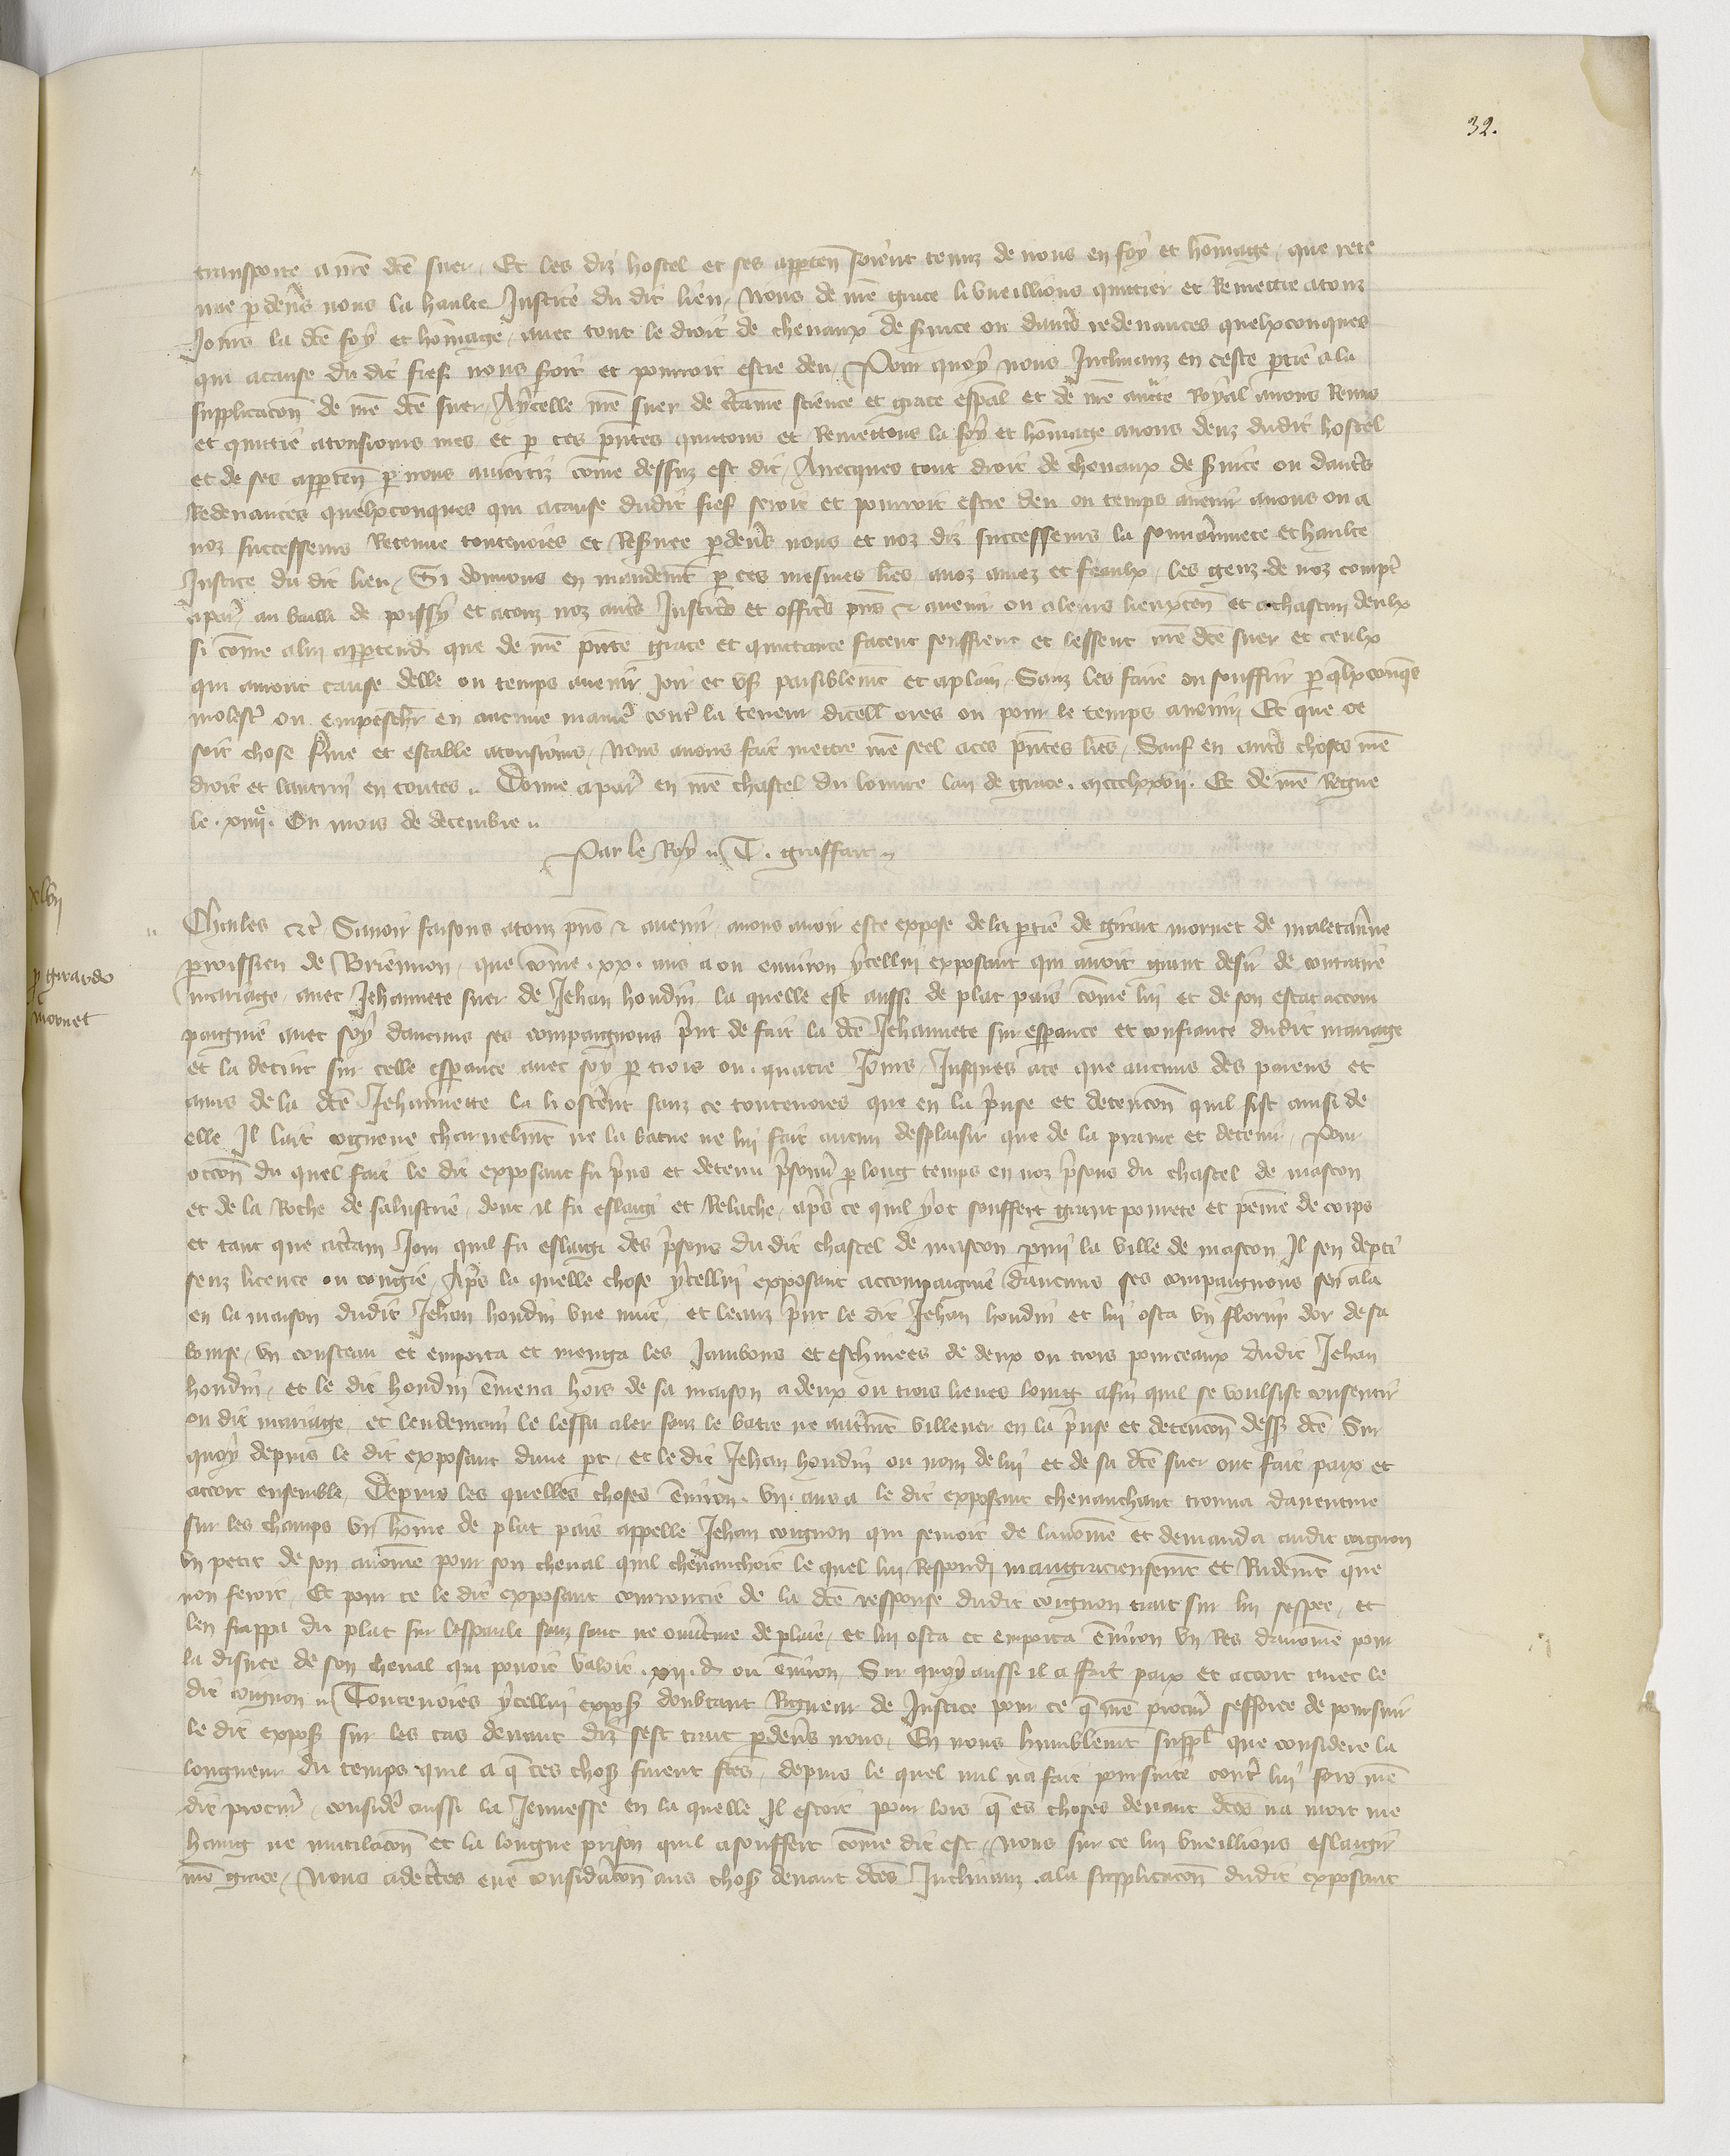 32.
transporte a nre dce suer. Et les diz hostel et ses apparten soient tenuz de nous en foy et homage, que rete
nue p devs nous la haulte Justice du dit lieu, Nous de nre grace li vueillions quitter et Remettre a touz
Jours la dce foy et homage, avec tout le droit de chevaux de svice ou dautres redevances quelxconques
qui a cause du dit fief nous soit et pourroit estre deu, Pour quoy nous Inclinanz en ceste ptie a la
supplicacon de nre dce suer, A ycelle nre suer de ctaine science et grace espal et de nre aucte Royal avons Remis
et quittie a tousjours mes et p ces pntes quittons et Remettons la foy et homage a nous deuz dudit hostel
et de ses apparten p nous amortiz come dessuz est dit, Avecques tout droit de chevaux de svice ou dautrs
Redevances quelxconques qui a cause dudit fief seroit et pourroit estre deu ou temps avenir a nous ou a
noz successeurs Retenue toutevoies et Resvee p devs nous et noz diz successeurs la souverainnete et haulte
Justice du dit lieu, Si donnons en mandemt p ces mesmes lres a noz amez et feaulx, les genz de noz compt
a par au bailli de poissy et a touz noz autrs Justics et offics pns & avenir ou a leurs lieuxten et a chascun deulx
si come a lui appartend que de nre pnte grace et quittance facent seuffrent et lessent nre dce suer et ceulx
qui auront cause delle ou temps avenir Joir et us paisiblemt et a plain, Sanz les faire ou souffrir p qlxconqs
molest ou empeschr en aucune manie cont la teneur dicell ores ou pour le temps avenir, Et que ce
soit chose ferme et estable a tousjours, Nous avons fait mettre nre seel a ces pntes lres, Sauf en autrs choses nre
droit et lautruy en toutes. Donne a par en nre chastel du louvre lan de grace. mccclxxvii. Et de nre Regne
le. xiiii. Ou mois de decembre.
Par le Roy. T. graffart
xlvii
p girardo
mornet
Charles etc Savoir faisons a touz pns & avenir, a nous avoir este expose de la ptie de girart mornet de
proissien de Briennon, que come. xx. ans a ou environ ycellui exposant qui avoit grant desir de contraire
mariage avec Jehannete suer de Jehan hondin la quelle est aussi de plat pais come lui et de son estat accom
paignie avec soy daucuns ses compaignons prit de fait la dce Jehannete sur esperance et confiance dudit mariage
et la detint sur celle esperance avec soy p trois ou quatre Jours, Jusques a ce que aucuns des parens et
amis de la dce Jehannette la li osterent sanz ce toutevoies que en la prise et detencon quil fist ainsi de
elle Il lait cogneue charnelmt ne la batue ne lui fait aucun desplaisir que de la prenre et detenir, Pour
occon du quel fait le dit exposant fu pris et detenu prisonn p long temps en noz prisons du chastel de mascon
et de la Roche de salustrie, dont il fu eslargi et Relache, apres ce quil y ot souffert grant povrete et peine de corps
et tant que a ctain Jour quil fu eslargi des prisons du dit chastel de mascon parmi la ville de mascon Il sen depti
senz licence ou congie, Apres la quelle chose ycellui exposant accompaignie daucuns ses compaignons sen ala
en la maison dudit Jehan hondin une nuit, et leanz prit le dit Jehan hondin et lui osta un florin dor de sa
bourse, un cousteau et emporta et menga les Jambons et eschinees de deux ou trois pourceaux dudit Jehan
hondin, et le dit hondin emena hors de sa maison a deux ou trois lieues loing afin quil se voulsist consentir
ou dit mariage, et lendemain le lessa aler sanz le batre ne autremt villener en la prise et detencon dess dce Sur
quoy depuis le dit exposant dune pt, et le dit Jehan hondin ou nom de lui et de sa dce suer ont fait paix et
accort ensemble, Depuis les quelles choses environ. vii. ans a le dit exposant chevauchant trouva daventure
sur les champs un home de plat pais appelle Jehan coignon qui semoit de lavoine et demanda audit coignon
un petit de son avoine pour son cheval quil chevauchoit le quel lui Respond maugracieusemt et Rudemt que
non feroit, Et pour ce le dit exposant courroucie de la dce response dudit coignon trait sur lui sespee, et
len frappa du plat sur lespaule sanz sanc ne ouvture de plaie, et lui osta et emporta environ un Res davoine pour
la disnee de son cheval qui povoit valoir. xii. d ou environ, Sur quoy aussi il a fait paix et accort avec le
dit coignon. Toutevoies ycellui expos doubtant Rigueur de Justice pour ce q nre procur sefforce de poursuir
le dit expos sur les cas devant diz sest trait p devs nous, En nous humblemt suppl que considere la
longueur du temps quil a q ces choses furent fces, depuis le quel nul na fait poursuite cont lui fors nre
dit procur, consider aussi la Jeunesse en la quelle Il estoit pour lors q es choses devant dces na mort ne
haing ne mutilacon et la longue prison quil a souffert come dit est, Nous sur ce lui vueillions eslargir
nre grace, Nous adectes eue consideracon aus chos devant dces Inclinanz a la supplicacon dudit exposant